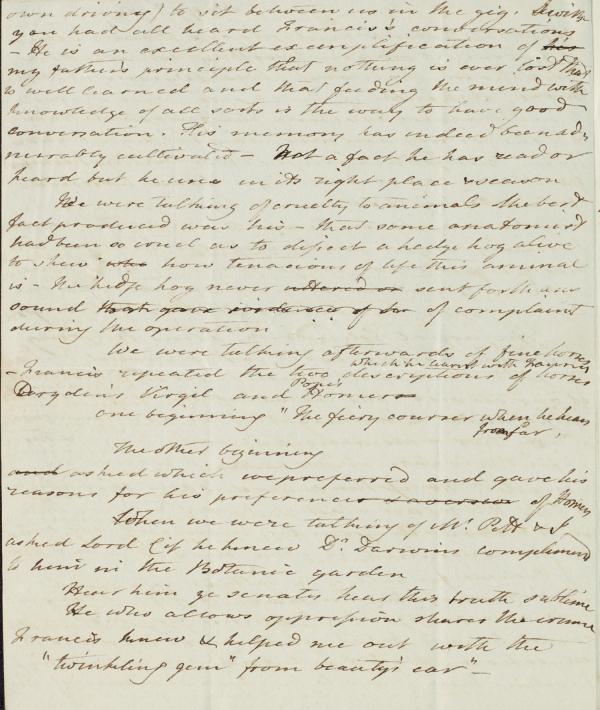 own driving) to sit between us in the gig. I wish
you had all heard Francis's conversations
- He is an excellent exemplification of his
my father's principle that nothing is ever lost that
is well learned and that feeding the mind with
knowledge of all sorts is the way to have good
conversation. His memory has indeed been ad-
mirably cultivated - Not a fact he has read or
heard but he uses in its right place & season
We were talking of cruelty to animals the best
fact produced was his - that some anatomist
had been so cruel as to disject a hedge hog alive
to shew who how tenacious of life this animal
is - the hedge hog never uttered or sent forth any
sound that gave evidence of of complaint
during the operation
We were talking afterwards of fine horses
which he learnt with
- Francis repeated the two descriptions of horses
Pope's
Dryden's Virgil and Homer
one beginning "The fiery courser when he hears
from far,
The other beginning
and asked which we preferred and gave his
reasons for his preference of Homer
When we were talking of Mr. Pitt & I
asked Lord C if he knew Dr. Darwins compliment
to him in the Botanic garden
Hear him ye senates hear this truth sublime
He who allows oppression shares the crime
Francis knew & helped me out with the
"twinkling gem" from beauty's ear" -